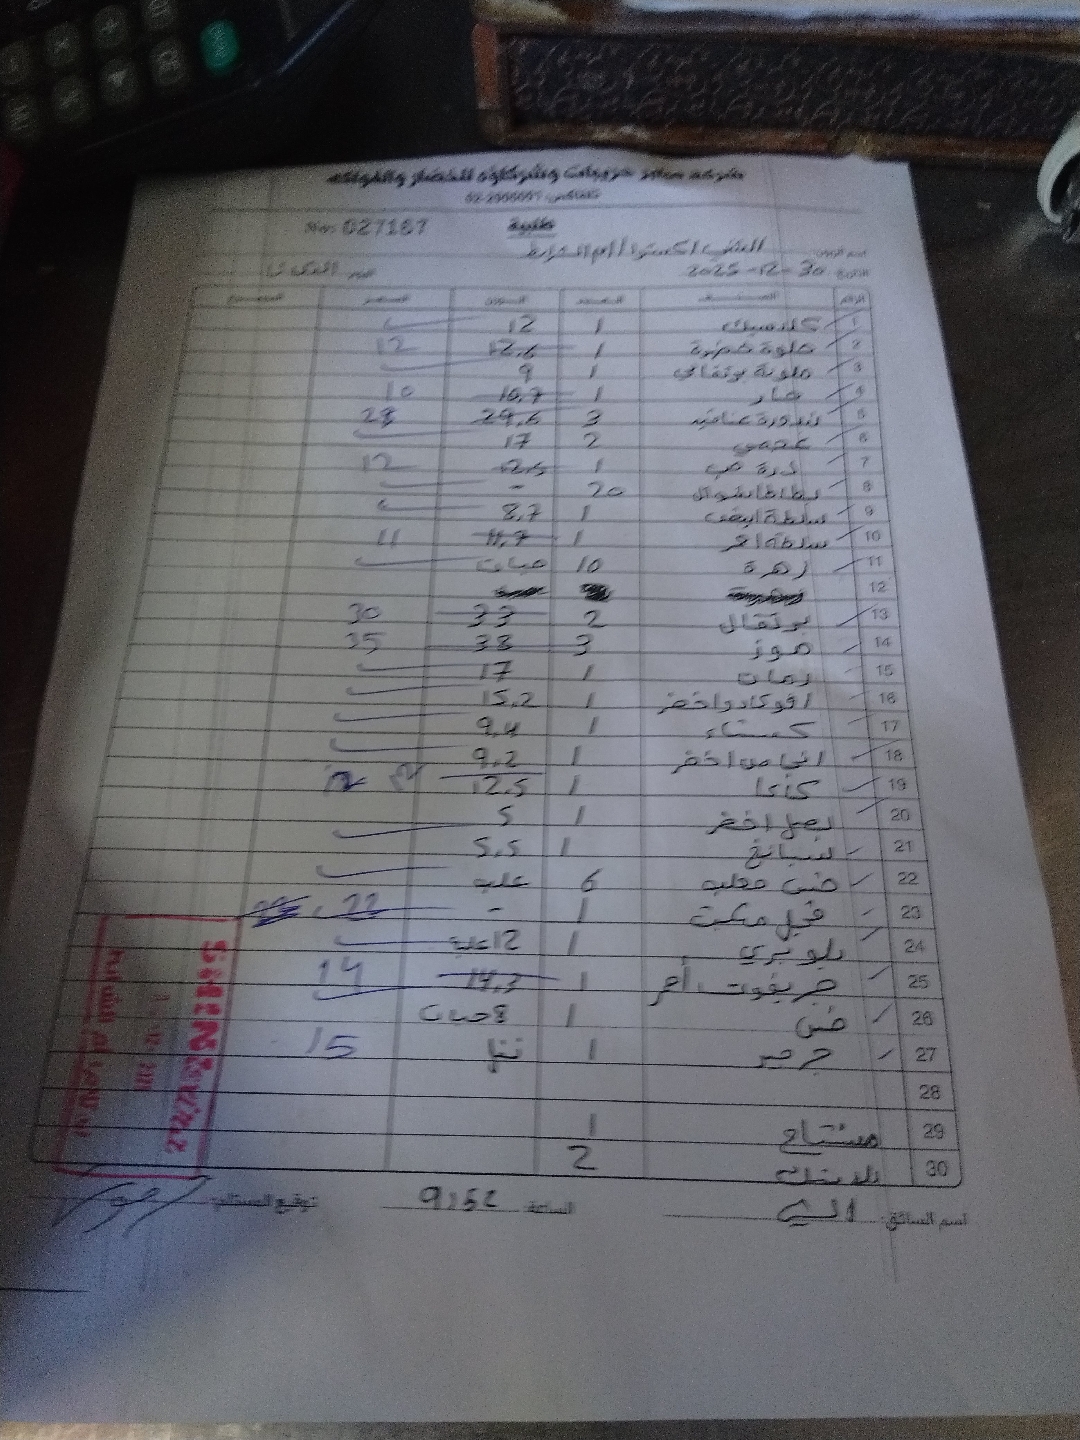 شركة وشركاؤه للخضار والفواكه
No: 027167 طلبية
التاريخ 30-12-2025 اليوم
الرقم الصنف العدد الوزن السعر المجموع
1 كلاسيك 1 12
2 حلوة خضرة 1 12,6 12
3 ملونة برتقالي 1 9
4 حار 1 10,7 10
5 بندورة عناقيد 3 29,6 28
6 عجمي 2 17
7 ذرة حب 1 12,5 12
8 بطاطا شوال 20 -
9 سلطة ابيض 1 8,7
10 سلطة احمر 1 11,7 11
11 زهرة 10 حبات
12
13 برتقال 2 33 30
14 موز 3 38 35
15 رمان 1 17
16 افوكادو اخضر 1 15,2
17 كستناء 1 9,4
18 اجاص اخضر 1 9,2
19 كندا 1 12,5 12
20 بصل اخضر 1 5
21 سبانخ 1 5,5
22 خس معلب 6 علب
23 فجل مكبت 1 - 22
24 بلوبيري 1 12 علبة
25 جريفوت أحمر 1 14,3 14
26 خس 1 8 حبات
27 جرجير 1 15
28
29 مشتاح 1
30 بلاستك 2
اسم السائق: الساعة 9:52 توقيع المستلم: